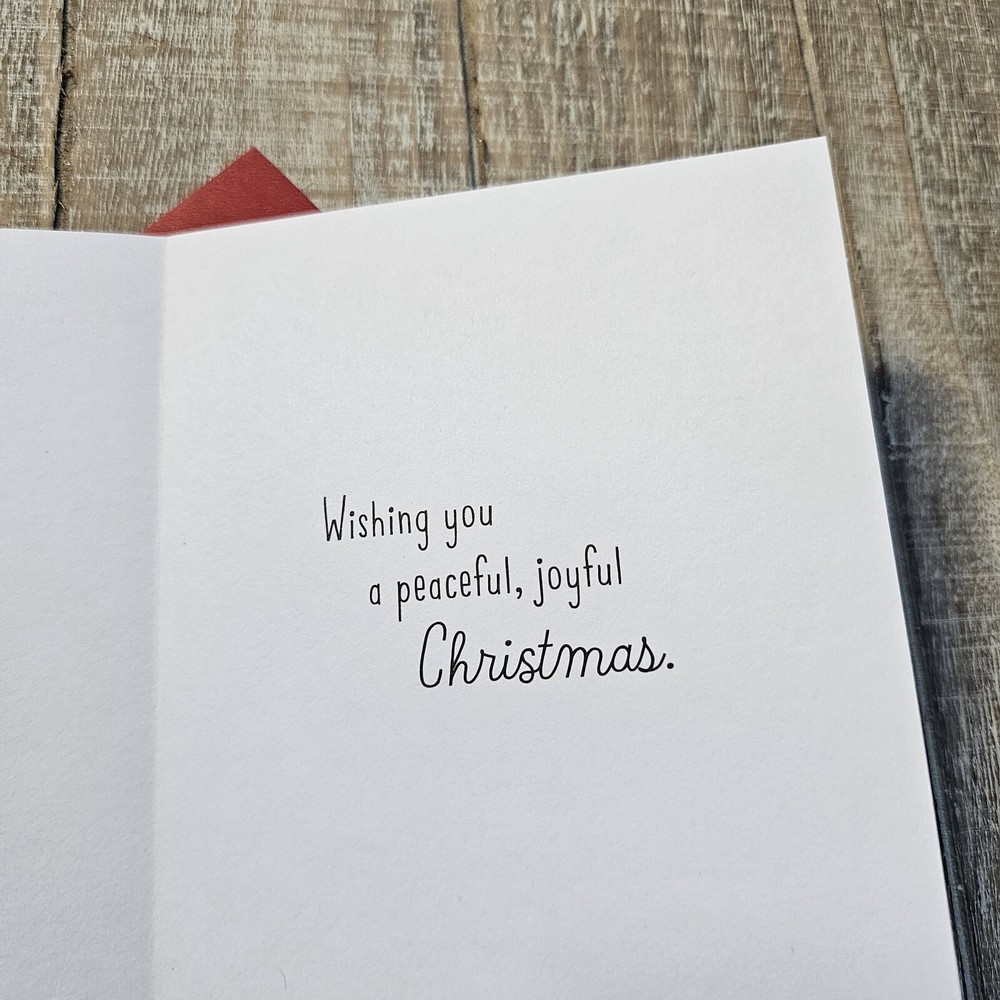 Wishing you
a peaceful, joyful
Christmas.